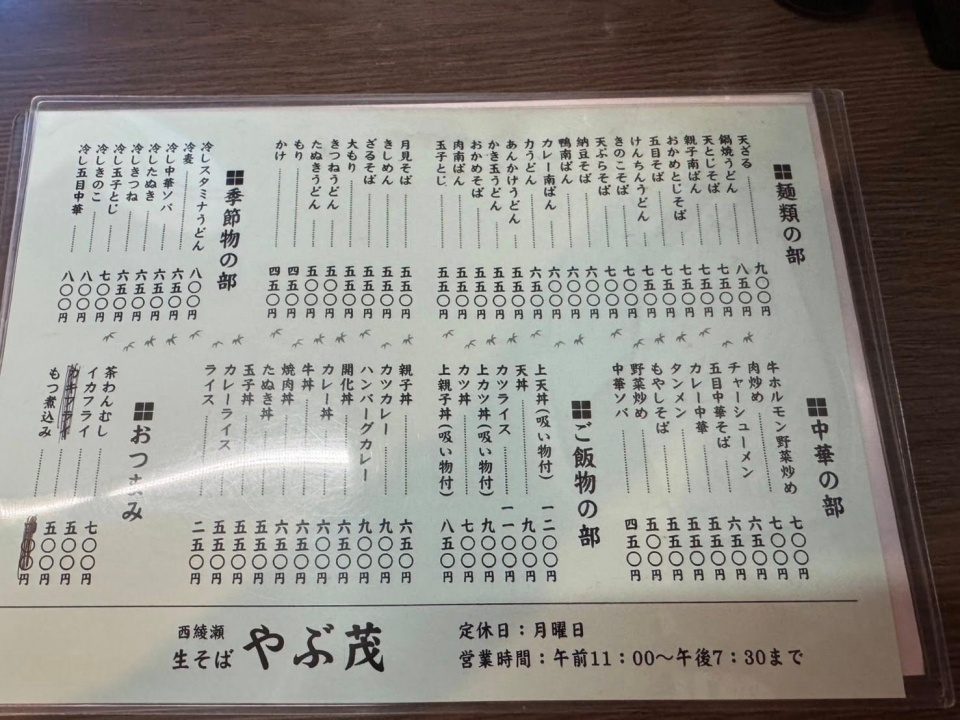 麺類の部
天ざる 九〇〇円
鍋焼うどん 八五〇円
天とじそば 七五〇円
親子南ばん 七五〇円
おかめとじそば 七五〇円
五目そば 七五〇円
けんちんうどん 七五〇円
きのこそば 七〇〇円
天ぷらそば 七〇〇円
納豆そば 六〇〇円
鴨南ばん 六〇〇円
カレー南ばん 六〇〇円
力うどん 六五〇円
あんかけうどん 五五〇円
かき玉うどん 五五〇円
おかめそば 五五〇円
肉南ばん 五五〇円
玉子とじ 五五〇円
月見そば 五五〇円
きしめん 五五〇円
ざるそば 五五〇円
大もり 五五〇円
きつねうどん 五五〇円
たぬきうどん 五五〇円
もり 四五〇円
かけ 四五〇円
季節物の部
冷しスタミナうどん 八〇〇円
冷麦 六五〇円
冷し中華ソバ 六五〇円
冷したぬき 六五〇円
冷しきつね 六五〇円
冷し玉子とじ 七〇〇円
冷しきのこ 八〇〇円
冷し五目中華 八〇〇円
中華の部
牛ホルモン野菜炒め 七〇〇円
肉炒め 七〇〇円
チャーシューメン 六五〇円
五目中華そば 六五〇円
カレー中華 五五〇円
タンメン 五五〇円
もやしそば 五五〇円
野菜炒め 五〇〇円
中華ソバ 四五〇円
ご飯物の部
上天丼(吸い物付) 一二〇〇円
天丼 九〇〇円
カツライス 一一〇〇円
上カツ丼(吸い物付) 九〇〇円
カツ丼 七〇〇円
上親子丼(吸い物付) 八五〇円
親子丼 六五〇円
カツカレー 九〇〇円
ハンバーグカレー 九〇〇円
開化丼 六五〇円
カレー丼 六〇〇円
牛丼 六五〇円
焼肉丼 六五〇円
たぬき丼 五五〇円
玉子丼 五五〇円
カレーライス 五五〇円
ライス 二五〇円
おつまみ
茶わんむし 七〇〇円
イカフライ 五〇〇円
もつ煮込み 五〇〇円
西綾瀬
生そば やぶ茂
定休日：月曜日
営業時間：午前11：00〜午後7：30まで